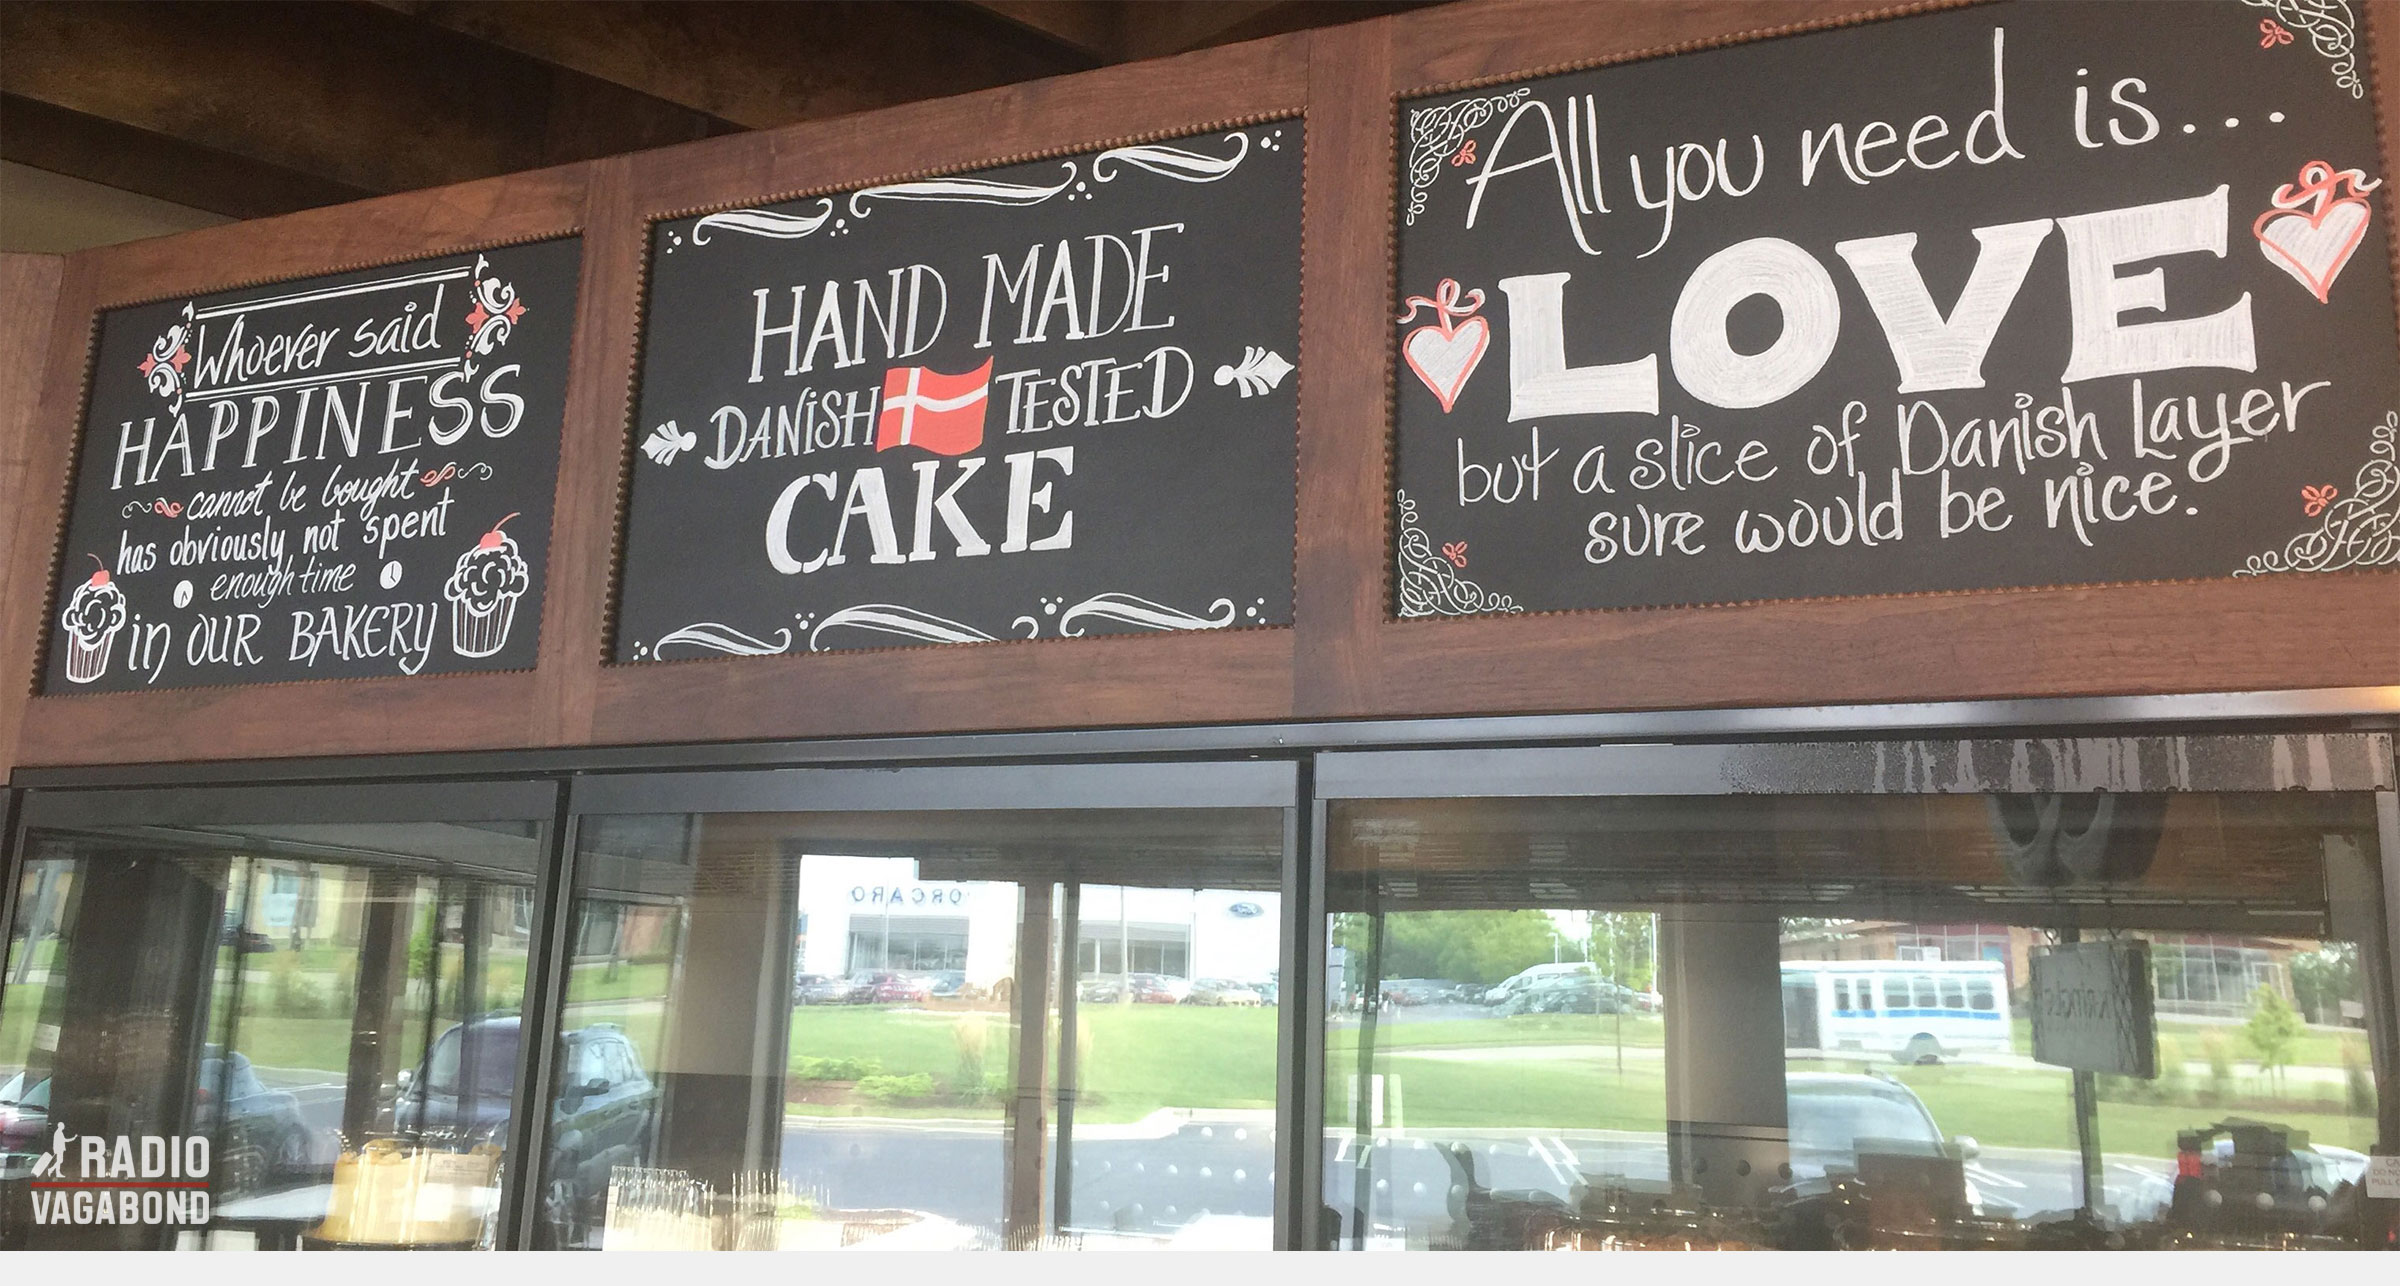 Whoever said
HAPPINESS
cannot be bought
has obviously not spent
enough time
in OUR BAKERY
HAND MADE
DANISH TESTED
CAKE
All you need is...
LOVE
but a slice of Danish Layer
sure would be nice.
PORCARO
Ford
RADIO
VAGABOND